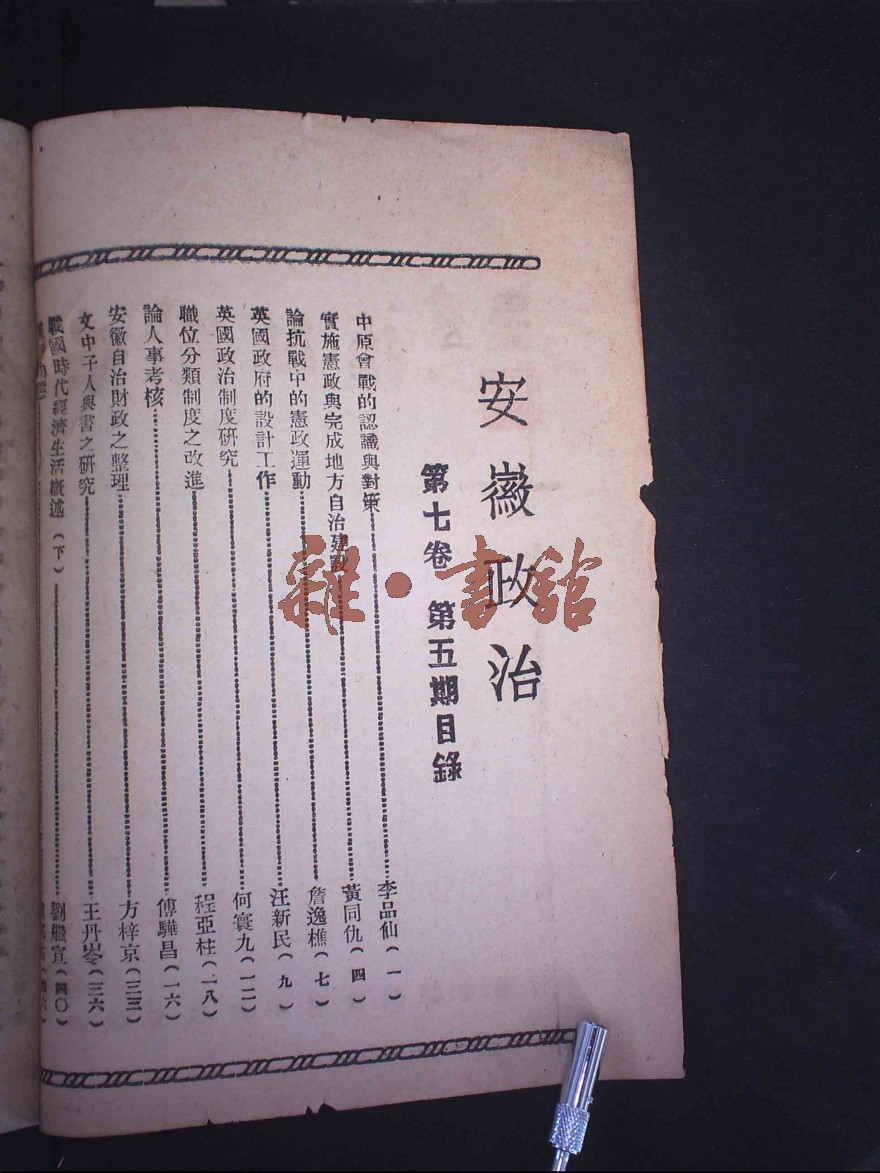 安徽政治
第七卷 第五期目錄
中原會戰的認識與對策……李品仙(一)
實施憲政與完成地方自治建設……黃同仇(四)
論抗戰中的憲政運動……詹逸樵(七)
英國政府的設計工作……汪新民(九)
英國政治制度研究……何寰九(一二)
職位分類制度之改進……程亞柱(一八)
論人事考核……傅驊昌(一六)
安徽自治財政之整理……方梓京(三三)
文中子人與書之研究……王丹岑(三六)
戰國時代經濟生活概述(下)……劉繼宣(四〇)
雜·書館